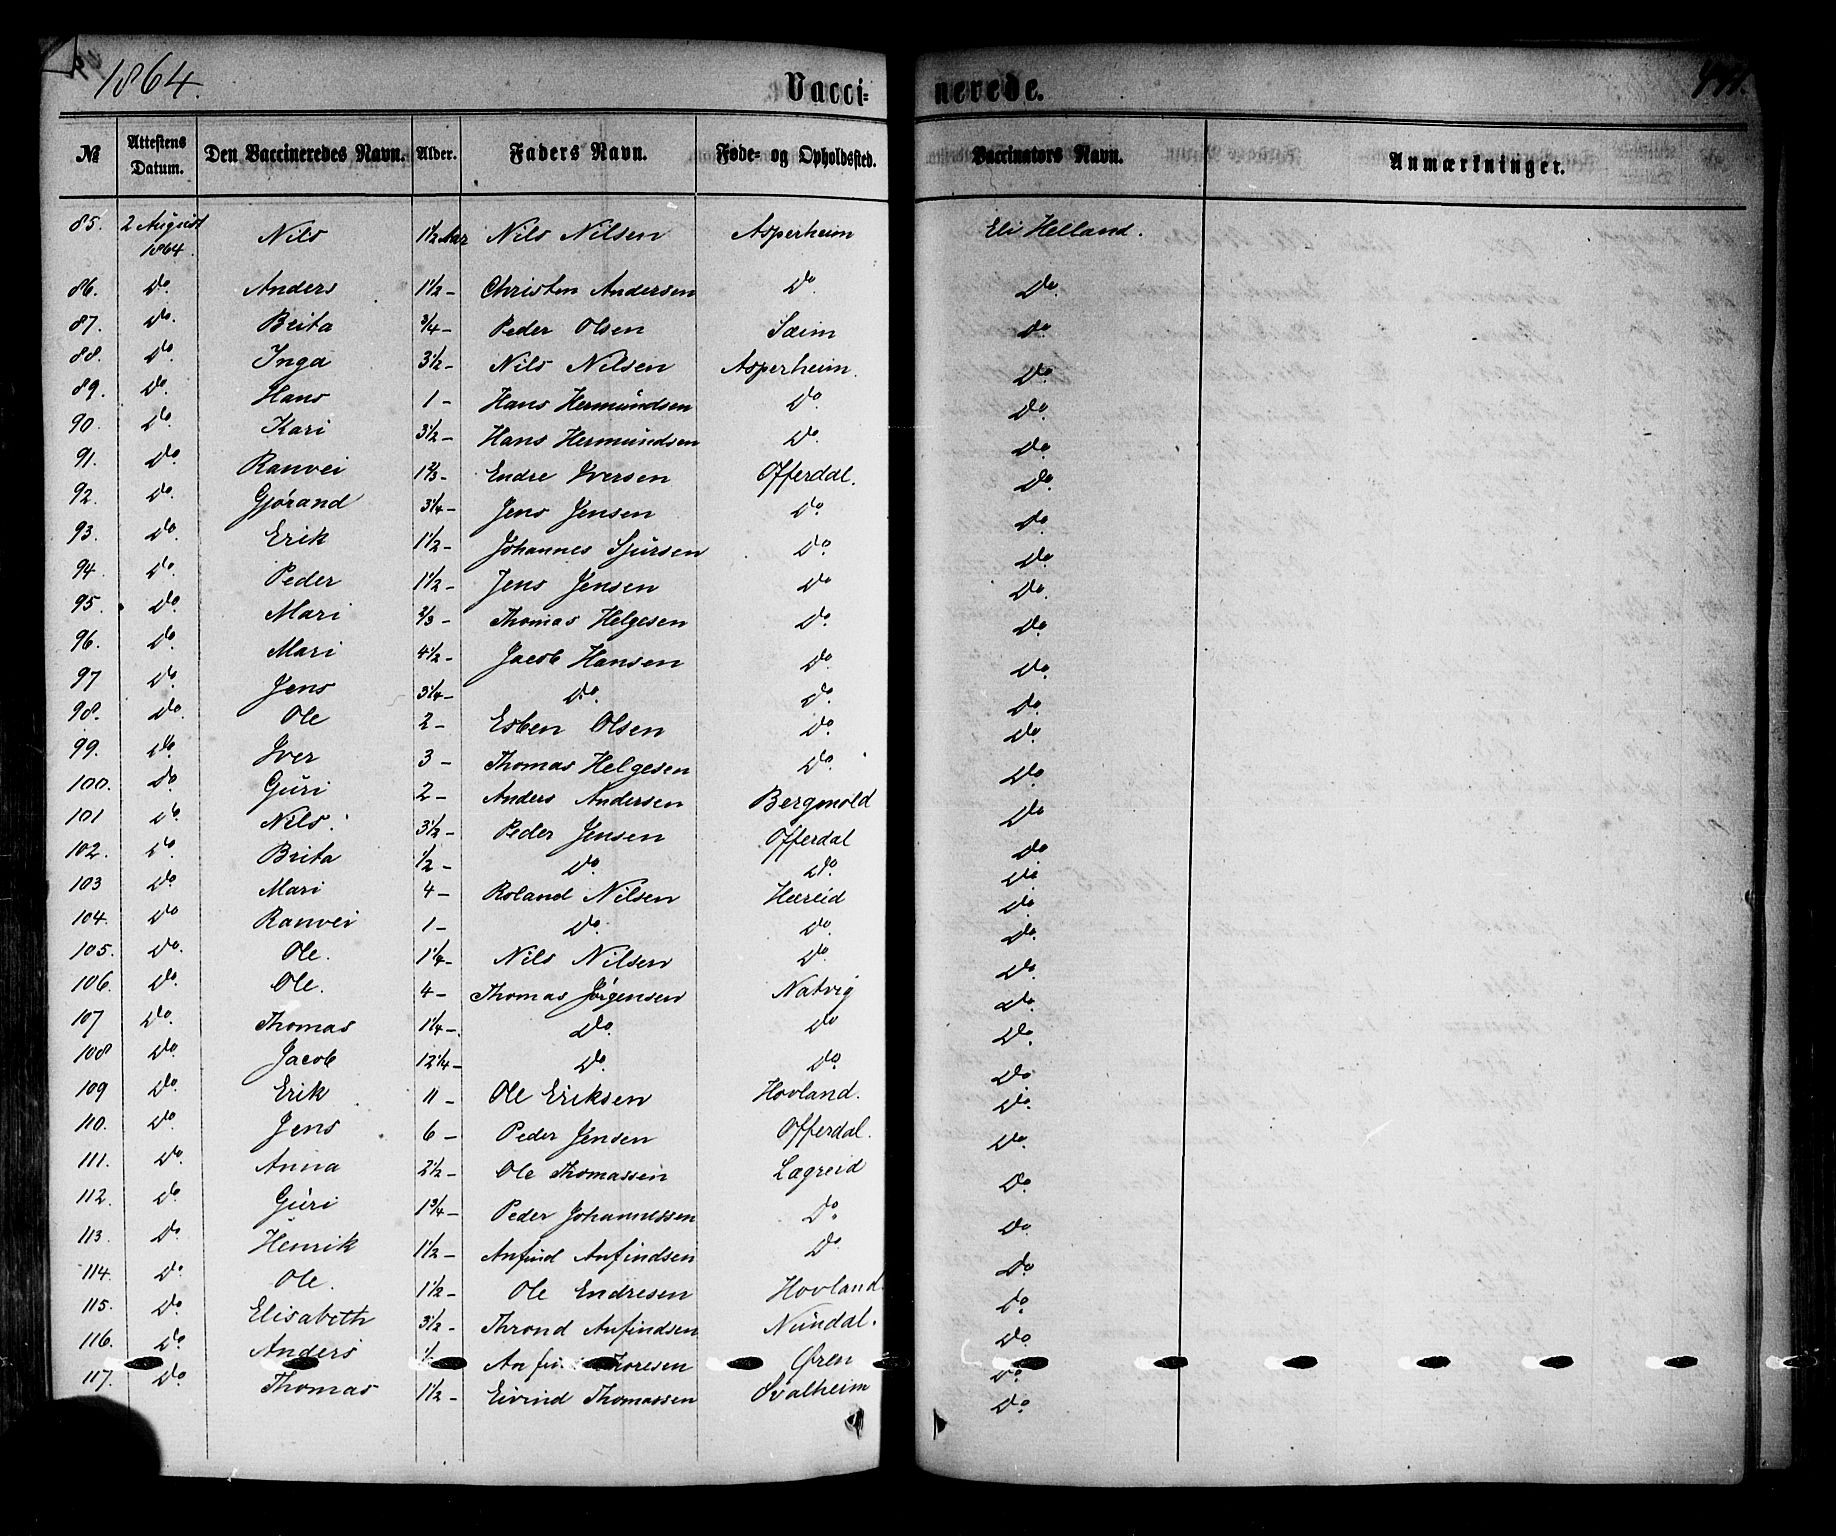 1864.
Vaccinerede.
№ Attestens Datum. Den Vaccineredes Navn. Alder. Faders Navn. Føde- og Opholdssted. Vaccinators Navn. Anmærkninger.
85. 2 August 1864. Nils 1 1/2 Aar Nils Nilsen Asperheim Eli Helland.
86. Do. Anders 1 1/2 - Christen Andersen Do. Do.
87. Do. Brita 3/4 - Peder Olsen Sæim Do.
88. Do. Inga 3 1/2 - Nils Nilsen Asperheim. Do.
89. Do. Hans 1 - Hans Hermundsen Do. Do.
90. Do. Kari 3 1/2 - Hans Hermundsen Do. Do.
91. Do. Ranvei 1 2/3 - Endre Iversen Offerdal. Do.
92. Do. Gjørand 3 1/4 - Jens Jensen Do. Do.
93. Do. Erik 1 1/2 - Johannes Sjursen Do. Do.
94. Do. Peder 1 1/2 - Jens Jensen Do Do.
95. Do. Mari 2/3 - Thomas Helgesen Do. Do.
96. Do. Mari 4 1/2 - Jacob Hansen Do. Do.
97 Do. Jens 3 1/4 - Do. Do. Do.
98. Do. Ole 2 - Esben Olsen Do. Do.
99. Do. Iver 3 - Thomas Helgesen Do. Do.
100. Do. Guri 2 - Anders Andersen Bergmold Do.
101 Do. Nils. 3 1/2 - Peder Jensen Offerdal Do.
102. Do. Brita 1/2 - Do. Do. Do.
103 Do. Mari 4 - Roland Nilsen Hæreid Do.
104. Do Ranvei 1 - Do. Do. Do.
105. Do. Ole. 1 1/4 - Nils Nilsen Do. Do.
106. Do. Ole. 4 - Thomas Jørgensen Natvig Do.
107 Do. Thomas 1 1/4 - Do. Do Do.
108 Do. Jacob 12 1/4 - Do. Do. Do.
109 Do. Erik 11 - Ole Eriksen Hovland. Do.
110. Do. Jens 6 - Peder Jensen Offerdal. Do.
111. Do. Anna 2 1/2 - Ole Thomassen Lægreid Do.
112. Do. Guri 1 3/4 - Peder Johannessen Do. Do.
113. Do. Henrik 1 1/2 - Anfind Anfindsen Do Do.
114. Do. Ole. 1 1/2 - Ole Endresen Hovland. Do.
115. Do. Elisabeth 3 1/2 - Thrond Anfindsen Nundal. Do.
116. Do. Anders Thoresen Øren Do.
117. Do. Thomas 1 1/2 - Eivind Thomassen Svalheim Do.